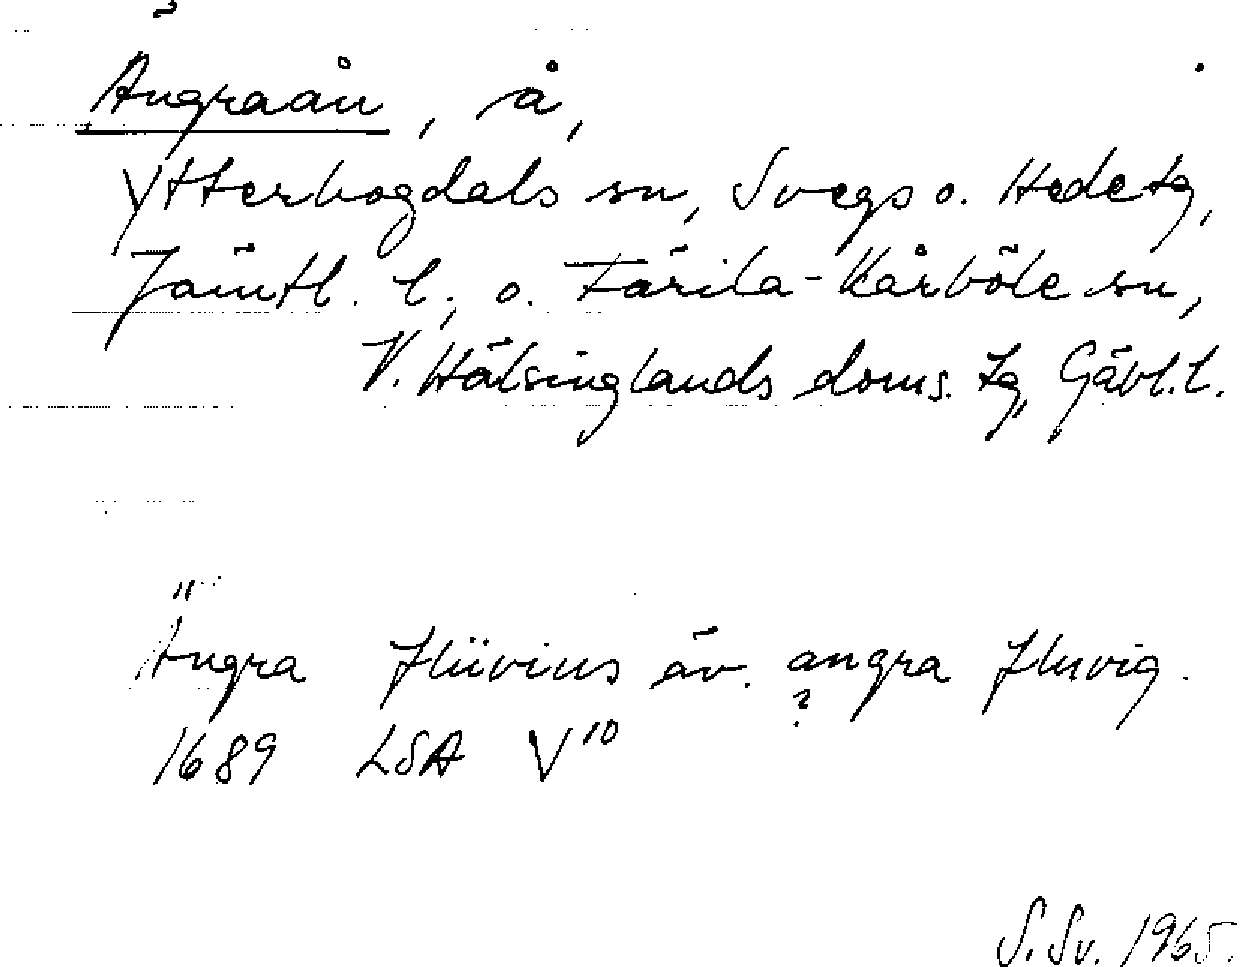 Ängraån, å,
Ytterhogdals sn, Svegs o. Hede tg,
Jämtl. l; o. Färila-Kårböle sn,
V. Hälsinglands doms. tg, Gävl. l.
Ängra flüvius äv. angra fluvig.
?
1689 LSA V¹⁰
S. Sv. 1965.